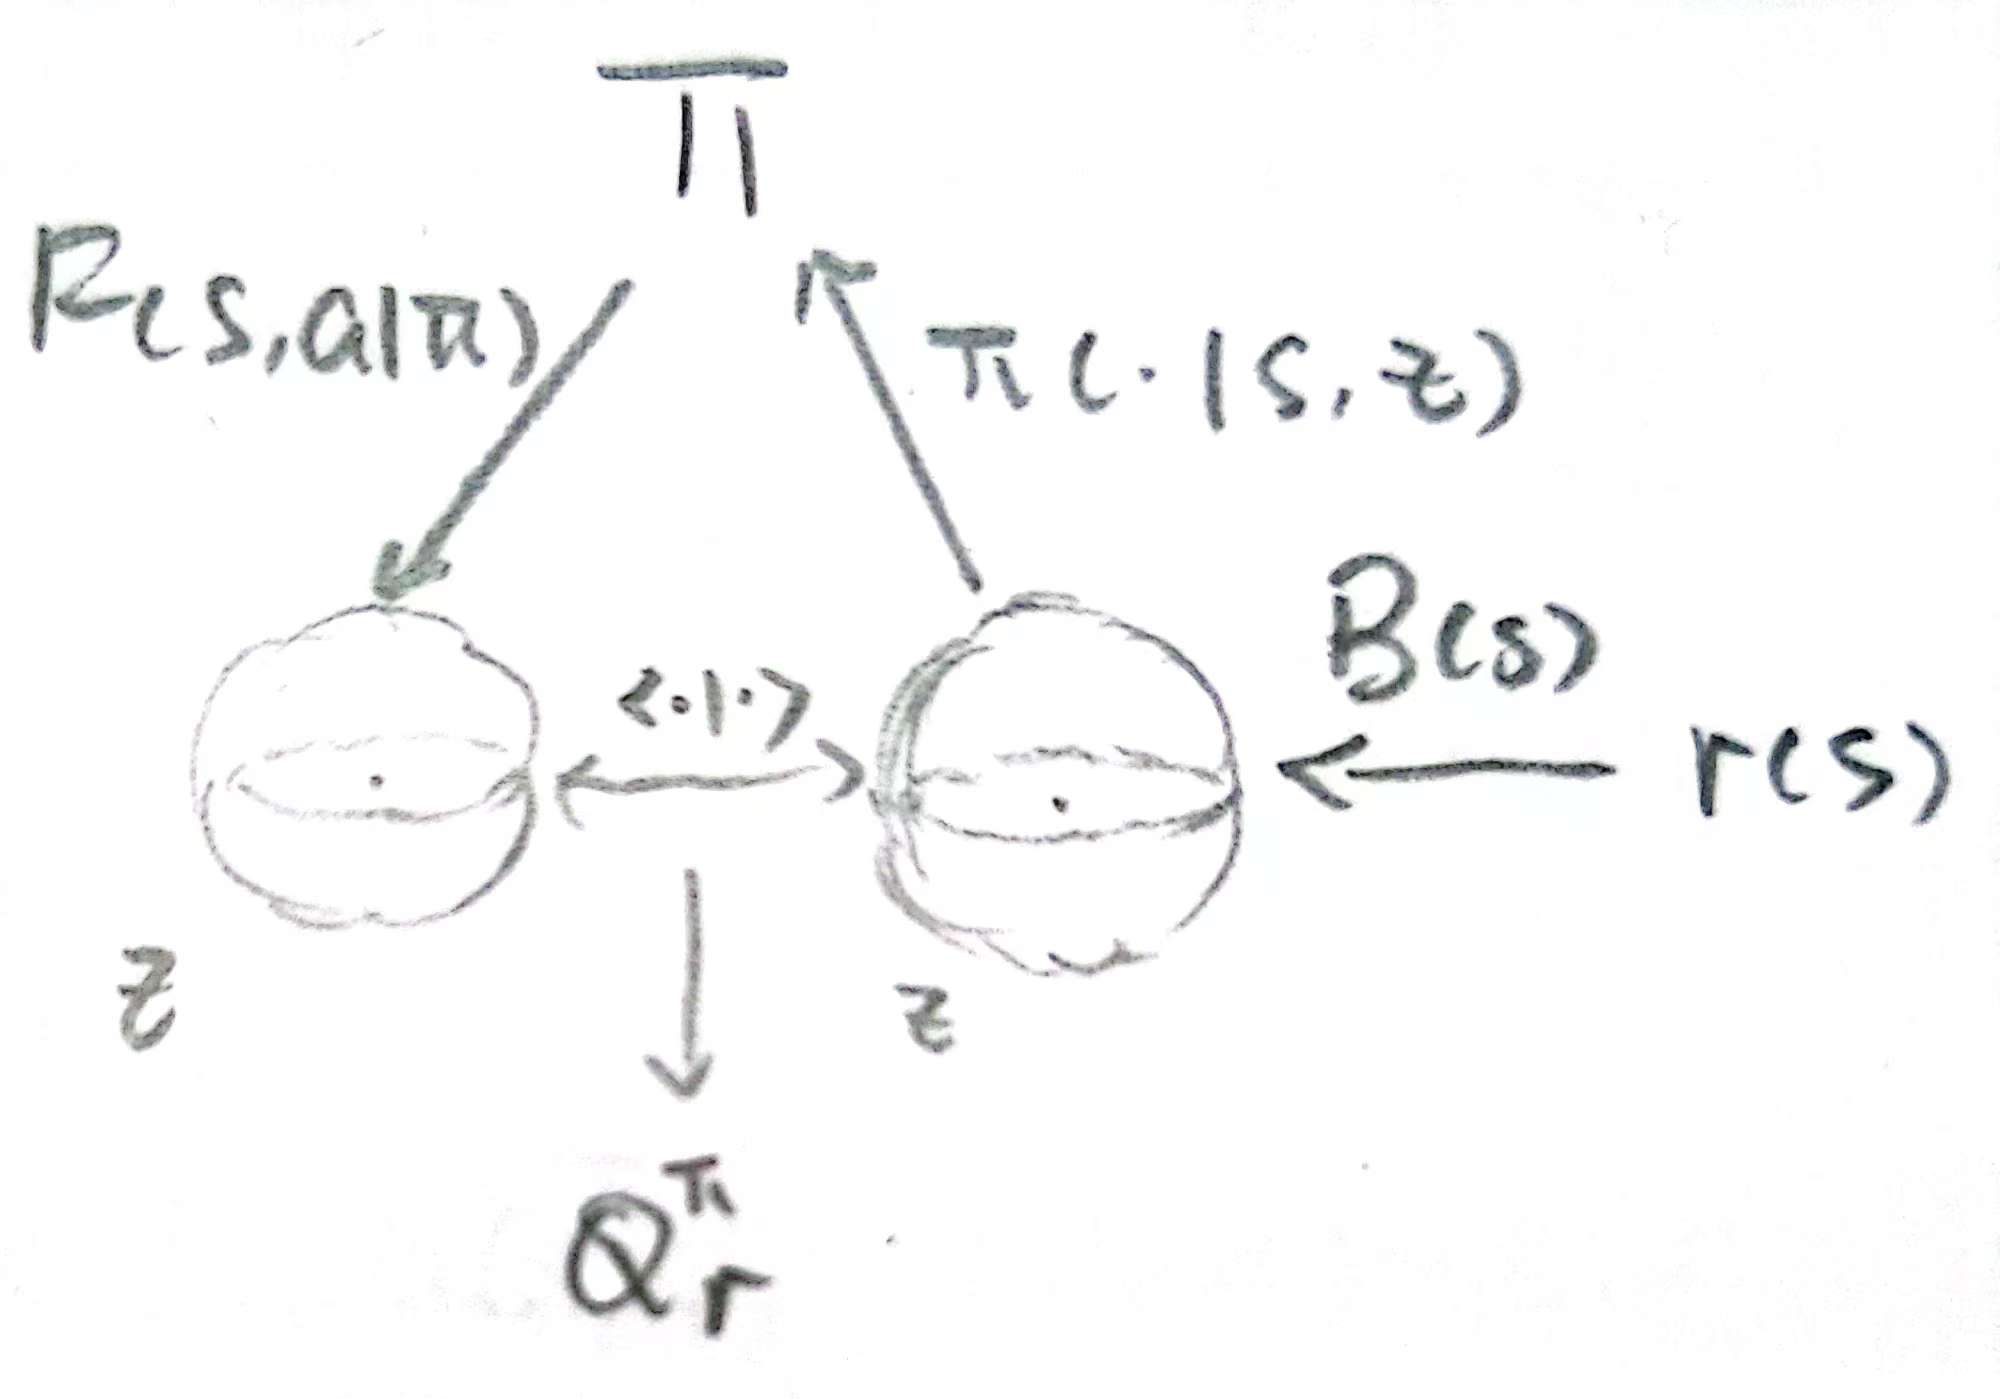 Π
R(s,a|π)
π(·|s,z)
B(s)
<·|·>
r(s)
z
z
Q^π_r